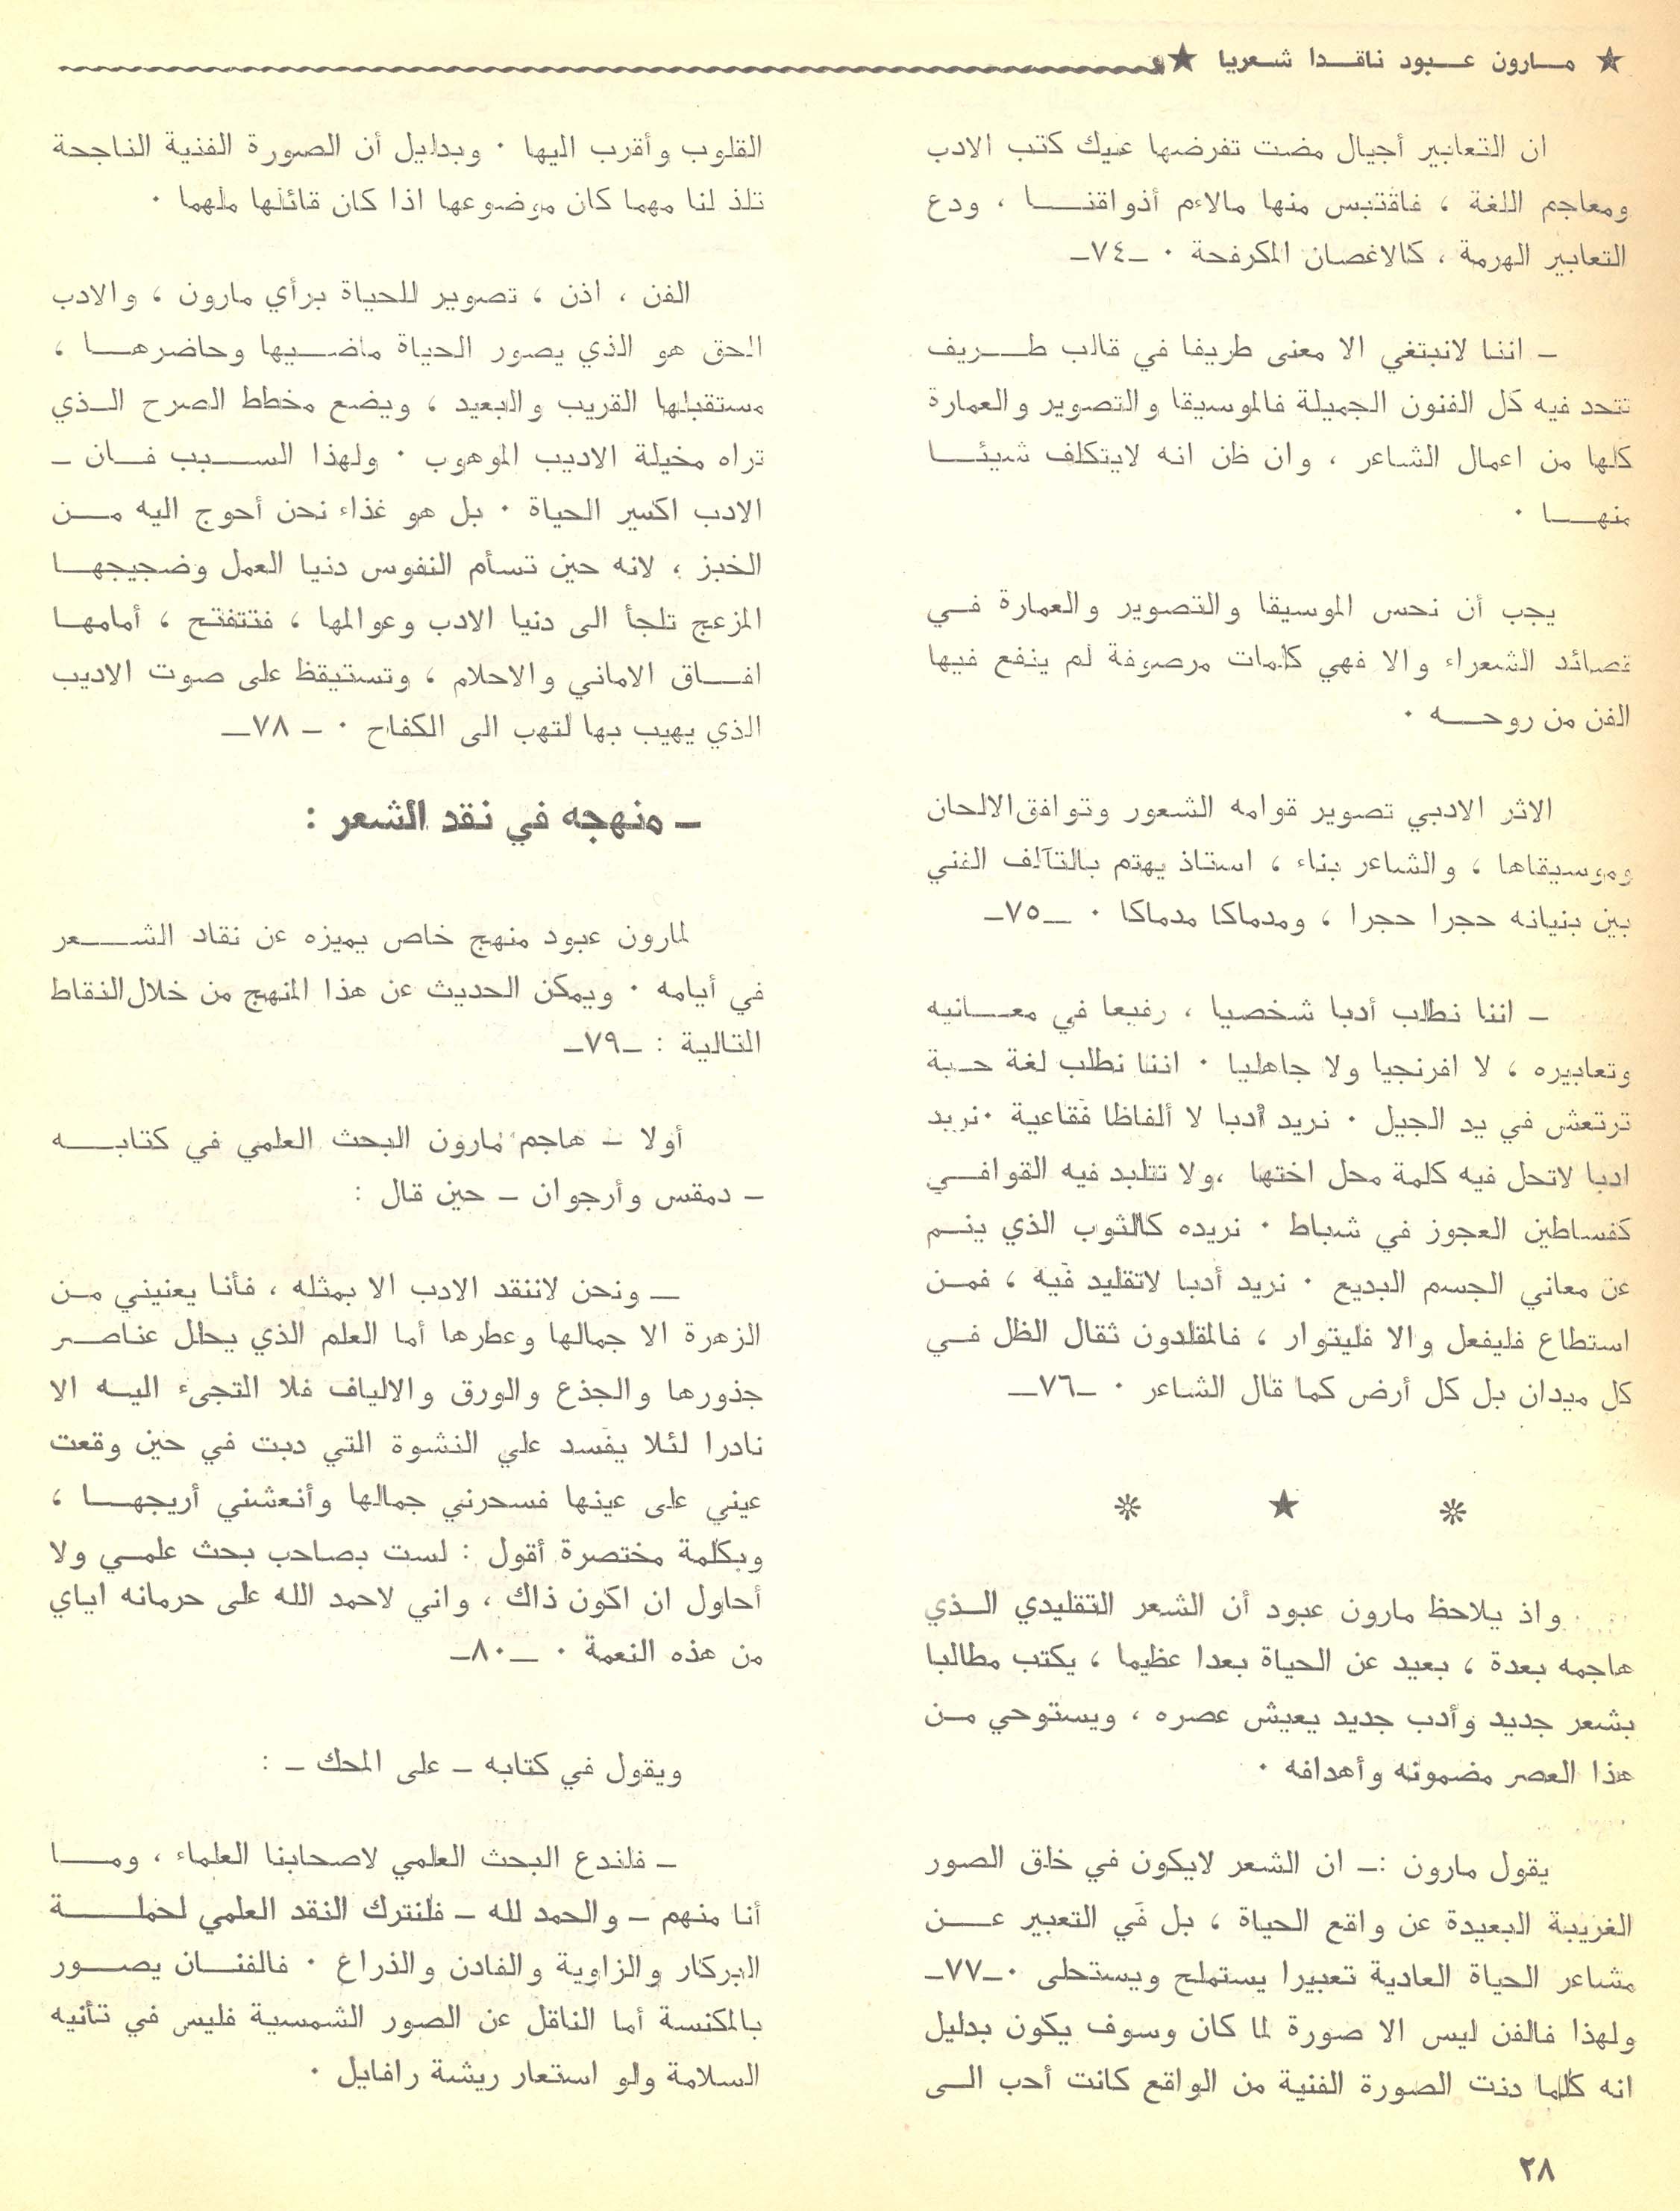 ★ مارون عبود ناقدا شعريا ★
ان التعابير أجيال مضت تفرضها عليك كتب الادب
ومعاجم اللغة ، فاقتبس منها مالاءم أذواقنا ، ودع
التعابير الهرمة ، كالاغصان المكرفحة ٠ ـ٧٤ـ
ـ اننا لانبتغي الا معنى طريفا في قالب طريف
تتحد فيه كل الفنون الجميلة فالموسيقا والتصوير والعمارة
كلها من اعمال الشاعر ، وان ظن انه لايتكلف شيئا
منها ٠
يجب أن نحس الموسيقا والتصوير والعمارة في
قصائد الشعراء والا فهي كلمات مرصوفة لم ينفع فيها
الفن من روحه ٠
الاثر الادبي تصوير قوامه الشعور وتوافق الالحان
وموسيقاها ، والشاعر بناء ، استاذ يهتم بالتآلف الغني
بين بنيانه حجرا حجرا ، ومدماكا مدماكا ٠ ـ٧٥ـ
ـ اننا نطلب أدبا شخصيا ، رفيعا في معانيه
وتعابيره ، لا افرنجيا ولا جاهليا ٠ اننا نطلب لغة حية
ترتعش في يد الجيل ٠ نريد أدبا لا ألفاظا فقاعية ٠نريد
ادبا لاتحل فيه كلمة محل اختها ،ولا تتلبد فيه القوافي
كفساطين العجوز في شباط ٠ نريده كالثوب الذي ينم
عن معاني الجسم البديع ٠ نريد أدبا لاتقليد فيه ، فمن
استطاع فليفعل والا فليتوار ، فالمقلدون ثقال الظل في
كل ميدان بل كل أرض كما قال الشاعر ٠ ـ٧٦ـ
❊ ★ ❊
واذ يلاحظ مارون عبود أن الشعر التقليدي الذي
هاجمه بعدة ، بعيد عن الحياة بعدا عظيما ، يكتب مطالبا
بشعر جديد وأدب جديد يعيش عصره ، ويستوحي من
هذا العصر مضمونه وأهدافه ٠
يقول مارون :ـ ان الشعر لايكون في خلق الصور
الغريبة البعيدة عن واقع الحياة ، بل في التعبير عن
مشاعر الحياة العادية تعبيرا يستملح ويستحلى ٠ـ٧٧ـ
ولهذا فالفن ليس الا صورة لما كان وسوف يكون بدليل
انه كلما دنت الصورة الفنية من الواقع كانت أحب الى
القلوب وأقرب اليها ٠ وبدليل أن الصورة الفنية الناجحة
تلذ لنا مهما كان موضوعها اذا كان قائلها ملهما ٠
الفن ، اذن ، تصوير للحياة برأي مارون ، والادب
الحق هو الذي يصور الحياة ماضيها وحاضرها ،
مستقبلها القريب والبعيد ، ويضع مخطط الصرح الذي
تراه مخيلة الاديب الموهوب ٠ ولهذا السبب فان ـ
الادب اكسير الحياة ٠ بل هو غذاء نحن أحوج اليه من
الخبز ، لانه حين تسأم النفوس دنيا العمل وضجيجها
المزعج تلجأ الى دنيا الادب وعوالمها ، فتتفتح ، أمامها
افاق الاماني والاحلام ، وتستيقظ على صوت الاديب
الذي يهيب بها لتهب الى الكفاح ٠ ـ ٧٨ـ
ـ منهجه في نقد الشعر :
لمارون عبود منهج خاص يميزه عن نقاد الشعر
في أيامه ٠ ويمكن الحديث عن هذا المنهج من خلال النقاط
التالية : ـ٧٩ـ
أولا ـ هاجم مارون البحث العلمي في كتابه
ـ دمقس وأرجوان ـ حين قال :
ـ ونحن لاننقد الادب الا بمثله ، فأنا يعنيني من
الزهرة الا جمالها وعطرها أما العلم الذي يحلل عناصر
جذورها والجذع والورق والالياف فلا التجىء اليه الا
نادرا لئلا يفسد علي النشوة التي دبت في حين وقعت
عيني على عينها فسحرني جمالها وأنعشني أريجها ،
وبكلمة مختصرة أقول : لست بصاحب بحث علمي ولا
أحاول ان اكون ذاك ، واني لاحمد الله على حرمانه اياي
من هذه النعمة ٠ ـ٨٠ـ
ويقول في كتابه ـ على المحك ـ :
ـ فلندع البحث العلمي لاصحابنا العلماء ، وما
أنا منهم ـ والحمد لله ـ فلنترك النقد العلمي لحملة
البركار والزاوية والفادن والذراع ٠ فالفنان يصور
بالمكنسة أما الناقل عن الصور الشمسية فليس في تأنيه
السلامة ولو استعار ريشة رافايل ٠
٢٨